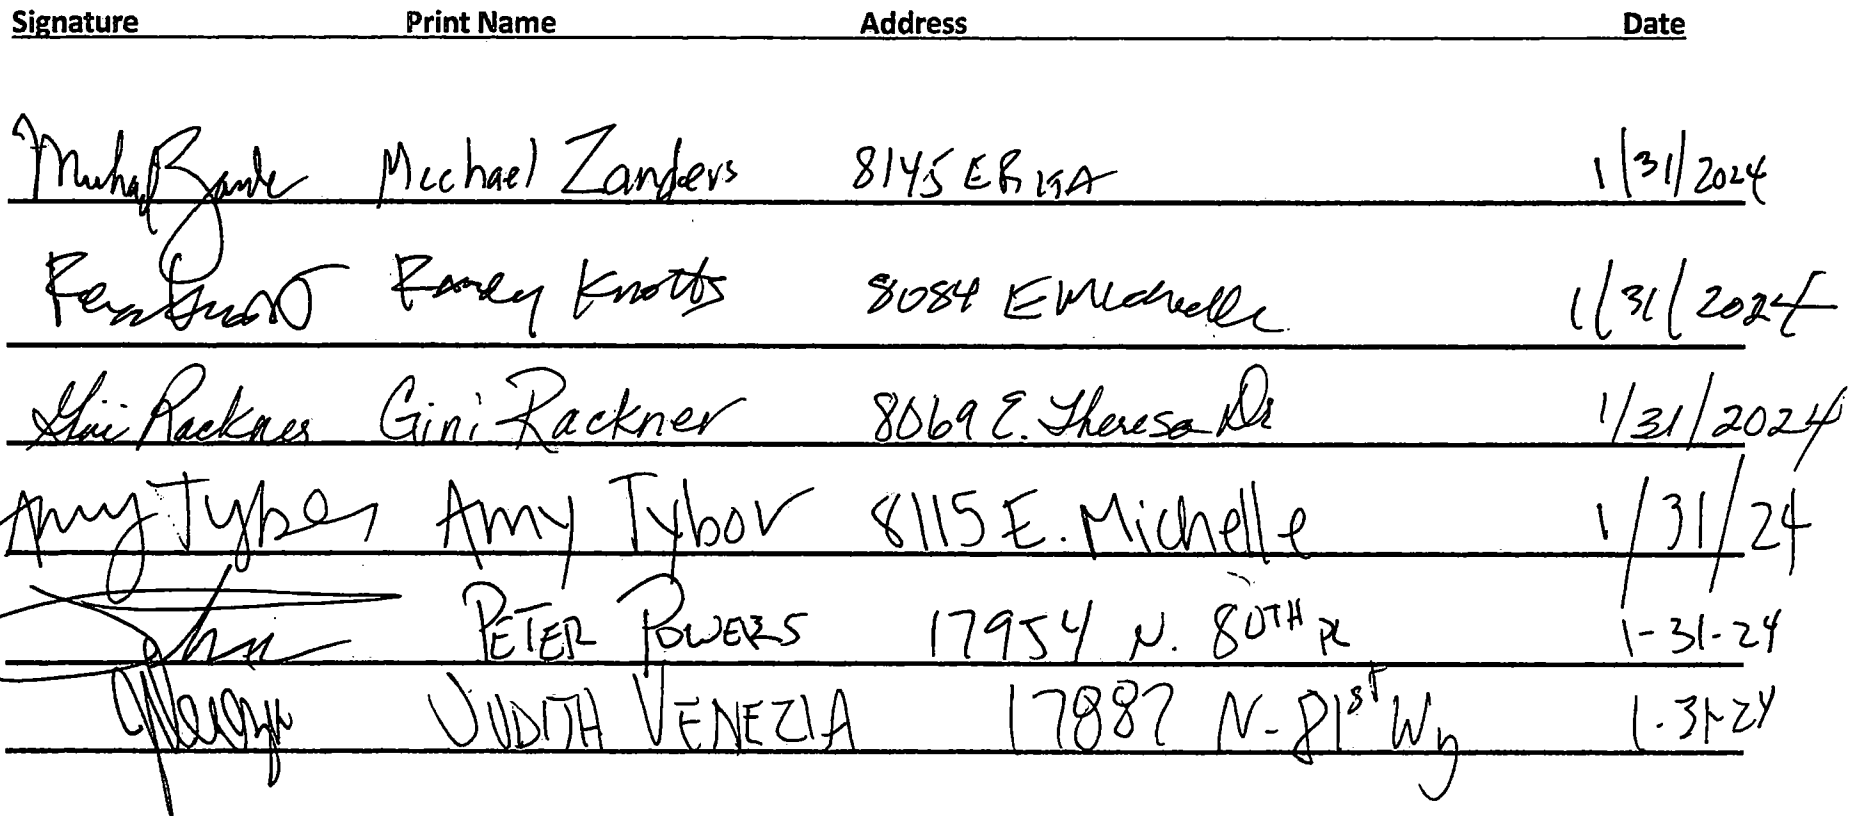 Signature Print Name Address Date
Michael Zanders 8145 E RITA 1/31/2024
Randy Knotts 8084 E Michelle 1/31/2024
Gini Rackner Gini Rackner 8069 E. Theresa Dr 1/31/2024
Amy Tybor Amy Tybor 8115 E. Michelle 1/31/24
PETER POWERS 17954 N. 80TH PL 1-31-24
JUDITH VENEZIA 17887 N- 81st Wy 1-31-24